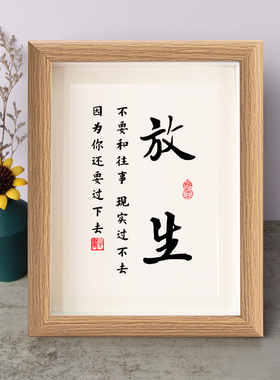 放生
不要和往事 现实过不去
因为你还要过下去